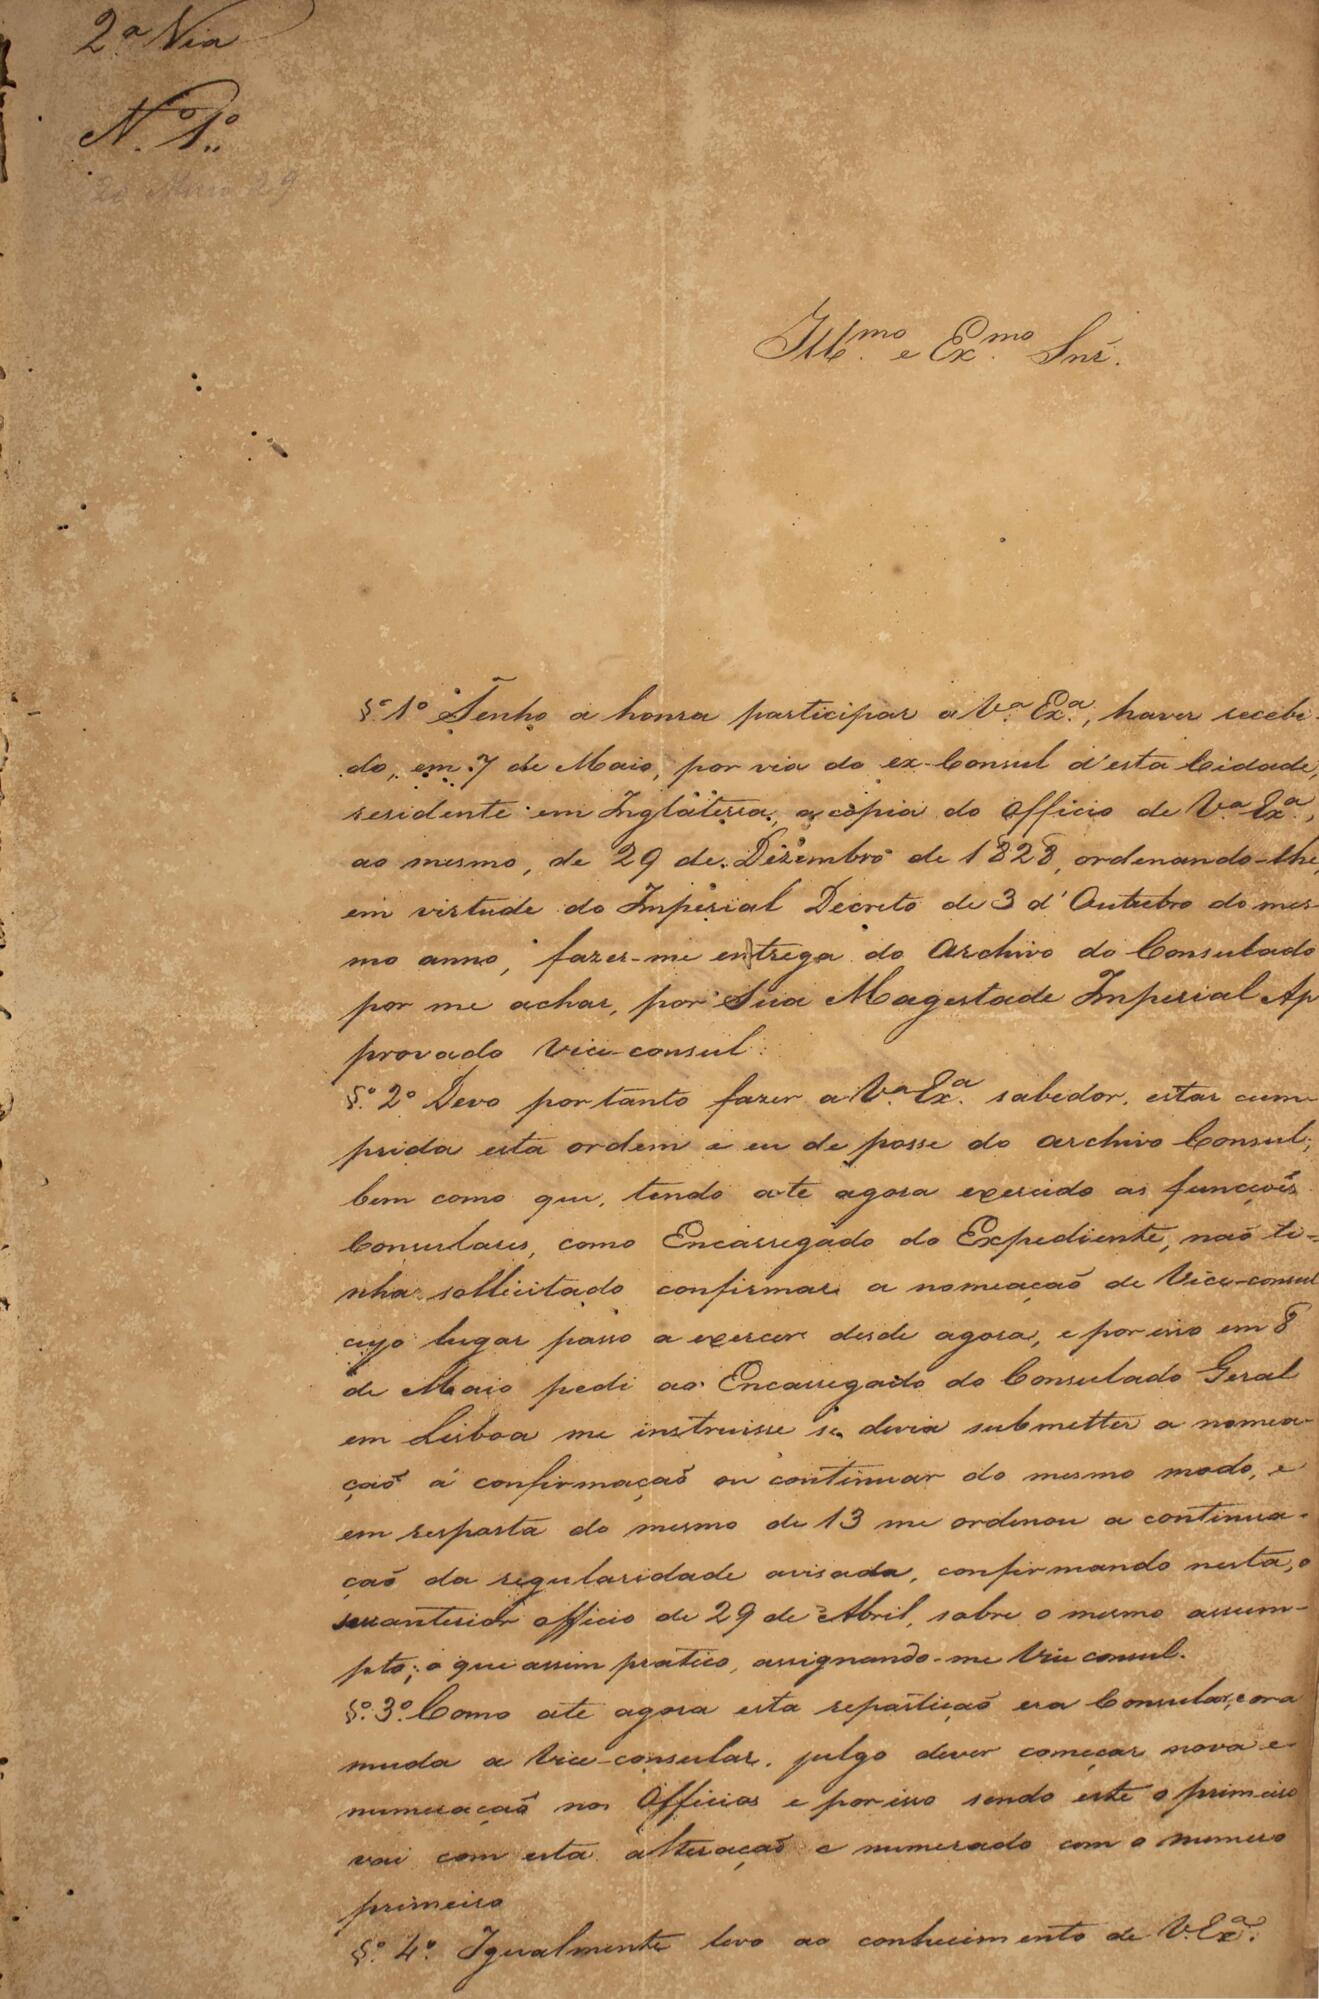 2.ª Via
N.º 1.º
29
Ill.mo e Ex.mo Snr.
§.º 1.º Tenho a honra participar a V.ª Ex.ª, haver recebi-
do, em 7 de Maio, por via do ex-Consul d'esta Cidade,
residente em Inglaterra, a copia do Officio de V.ª Ex.ª,
ao mesmo, de 29 de Dezembro de 1828, ordenando-lhe,
em virtude do Imperial Decreto de 3 d'Outubro do mes-
mo anno, fazer-me entrega do Archivo do Consulado
por me achar, por Sua Magestade Imperial Ap
provado Vice-consul.
§.º 2.º Devo portanto fazer a V.ª Ex.ª sabedor, estar cum-
prida esta ordem e eu de posse do archivo Consul;
bem como que, tendo até agora exercido as funçoẽs
Consulares, como Encarregado do Expediente, naõ ti-
nha sollicitado confirmar a nomeaçaõ de Vice-consul
cujo lugar passo a exercer desde agora, e por isso em 8
de Maio pedi ao Encarregado do Consulado Geral
em Lisboa me instruisse se devia submetter a nomea-
çaõ á confirmaçaõ ou continuar do mesmo modo, e
em resposta do mesmo de 13 me ordenou a continua-
çaõ da regularidade avisada, confirmando nesta, o
seu anterior officio de 29 de Abril, sobre o mesmo assum-
pto; o que assim pratico, assignando-me Vice consul.
§.º 3.º Como até agora esta repartiçaõ era Consular, e ora
muda a Vice-consular, julgo dever começar nova e
numeraçaõ nos Officios e por isso sendo este o primeiro
vai com esta alteraçaõ e numerado com o numero
primeiro
§.º 4.º Igualmente levo ao conhecimento de V. Ex.ª